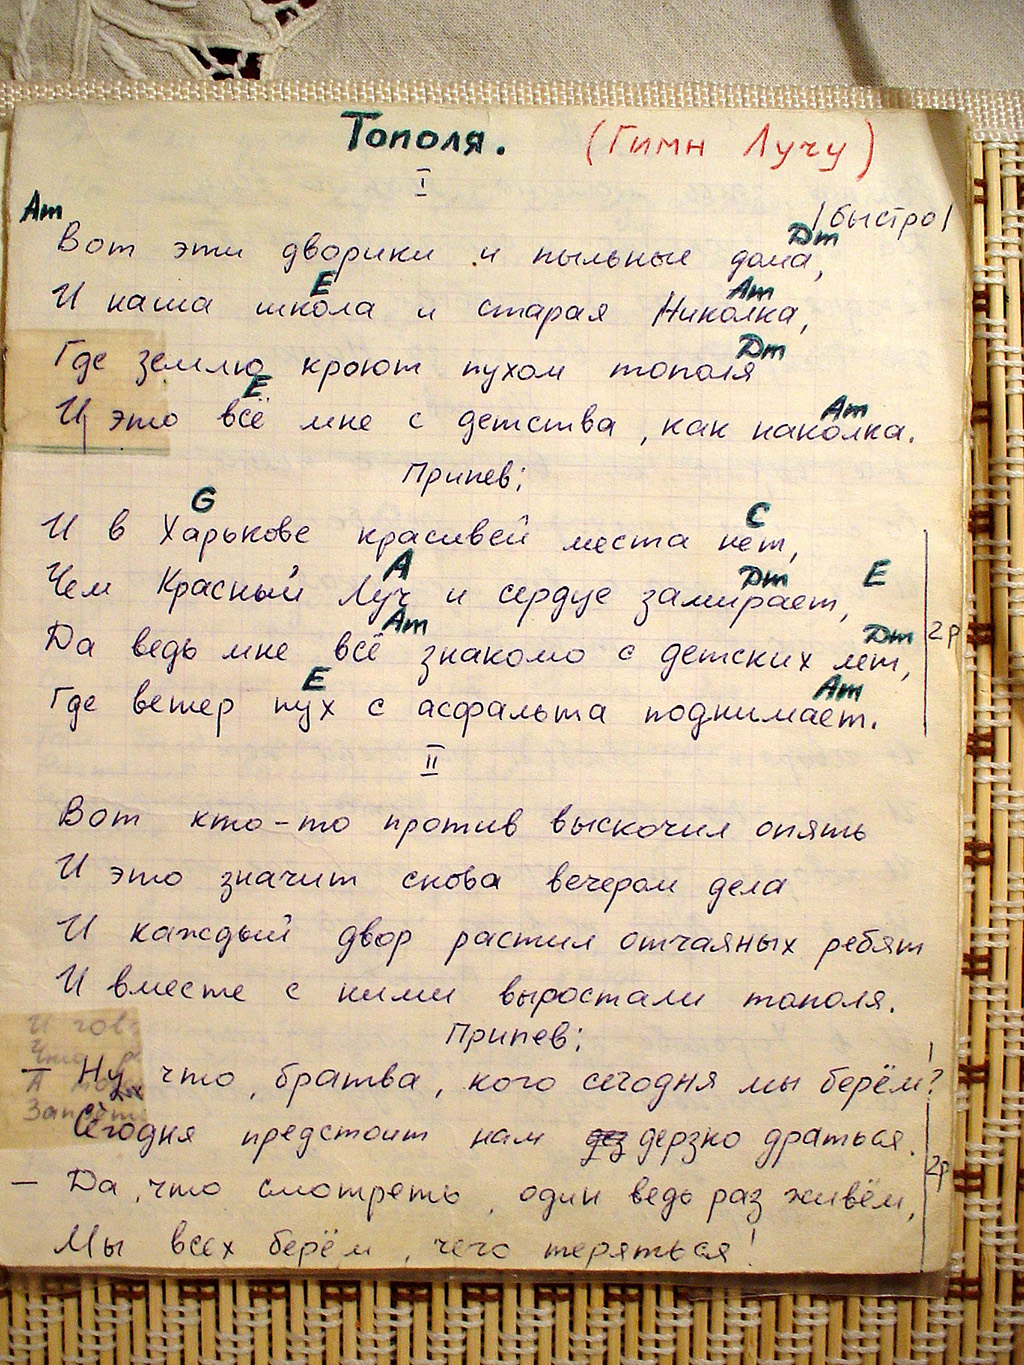 Тополя. (Гимн Лучу)
I
/быстро/
Am Dm
Вот эти дворики и пыльные дома,
E Am
И наша школа и старая Николка,
Dm
Где землю кроют пухом тополя
E Am
И это всё мне с детства, как наколка.
Припев:
G C
И в Харькове красивей места нет,
A Dm E
Чем Красный Луч и сердце замирает,
Am Dm
Да ведь мне всё знакомо с детских лет,
2р
E Am
Где ветер пух с асфальта поднимает.
II
Вот кто-то против выскочил опять
И это значит снова вечером дела
И каждый двор растил отчаяных ребят
И вместе с ними выростали тополя.
Припев:
И гов
— Ну что, братва, кого сегодня мы берём?
Сегодня предстоит нам дерзко драться.
2р
— Да, что смотреть, один ведь раз живём,
Мы всех берём, чего теряться!